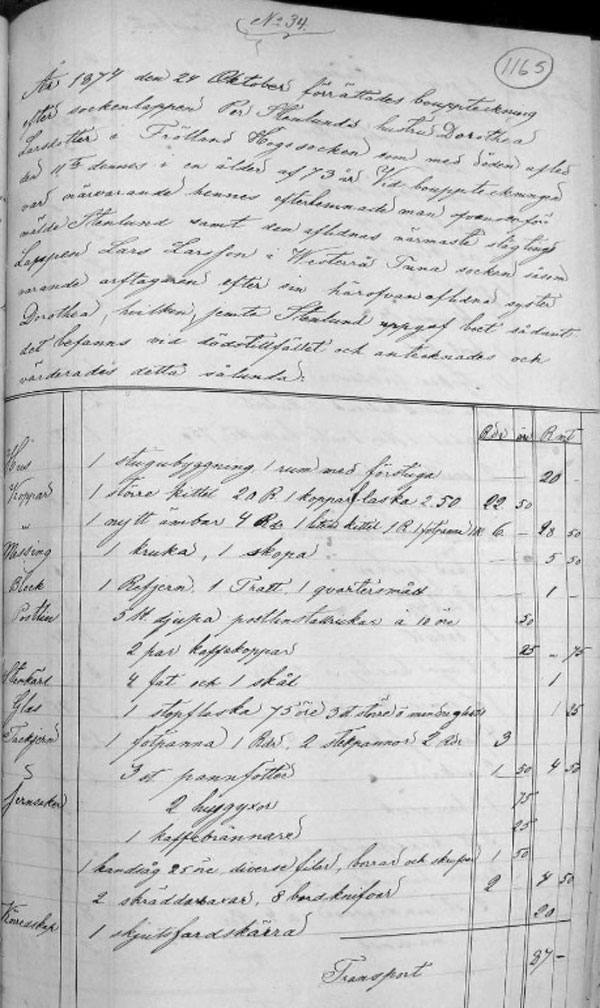 No 34.
1165
År 1874 den 24 Oktober förrättades bouppteckning
efter sockenlappen Per Stenlunds hustru Dorothea
Larsdotter i Frötland Hogs socken som med döden afled
den 11te dennes i en ålder af 73 år. Vid bouppteckningen
var närvarande hennes efterlemnade man ofvananför
mälde Stenlund samt den aflidnas närmaste slägtinge
Lappen Lars Larsson i Westerrå Tuna socken såsom
varande arftagare efter sin härofvan aflidna syster
Dorothea, hvilken jemte Stenlund uppgaf boet sådant
det befanns vid dödstillfället och antecknades och
värderades detta sålunda:
Rdr öre Rmt
Hus 1 stugubyggning 1 rum med förstuga 20 -
Koppar 1 större kittel 20 R 1 kopparflaska 2 50 22 50
" 1 nytt ämbar 4 Rdr 1 liten kittel 1 R 1 fotpanna 1 R 6 - 28 50
Messing 1 kruka, 1 skopa 5 50
Bleck 1 Refjern, 1 Tratt, 1 qvartersmått 1 -
Postlin 5 st. djupa postlinstallrickar à 10 öre 50
2 par kaffekoppar 25 - 75
Stenkärl 4 fat och 1 skål 1
Glas 1 stopflaska 75 öre 3 st större o mindre glas 1 25
Tackjern 1 fotpanna 1 Rdr, 2 stekpannor 2 Rdr 3
3 st pannfötter 1 50 4 50
Jernsaker 2 huggyxor 75
1 kaffebrännare 25
1 handsåg 25 öre diverse filar, borrar och 1 50
2 skräddaresaxar, 8 bordsknifvar 2 - 4 50
Köreredskap 1 skjutsfärdskärra 20
Transport 87 -